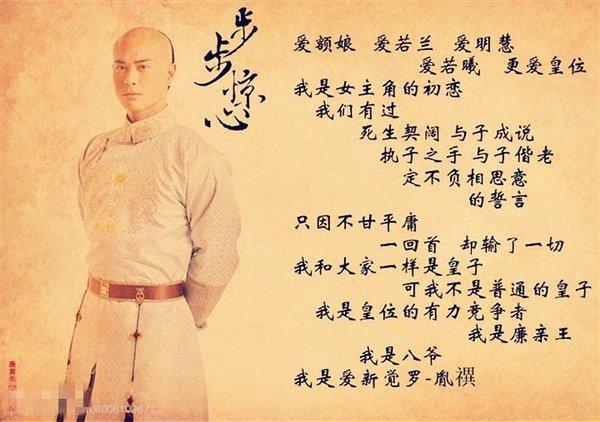 步步惊心
爱额娘 爱若兰 爱明慧
爱若曦 更爱皇位
我是女主角的初恋
我们有过
死生契阔 与子成说
执子之手 与子偕老
定不负相思意
的誓言
只因不甘平庸
一回首 却输了一切
我和大家一样是皇子
可我不是普通的皇子
我是皇位的有力竞争者
我是廉亲王
我是八爷
我是爱新觉罗-胤禩
庚寅年